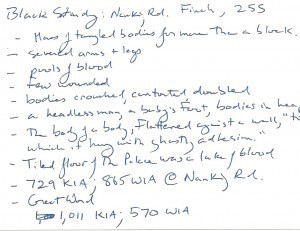 Black Saturday: Nanking Rd. Finch, 255
- Mass of tangled bodies for more than a block.
- severed arms + legs
- pools of blood
- Few wounded
- bodies crouched, contorted, doubled
- a headless man, a baby's foot, bodies in heaps
- The body of a boy, flattened against a wall, "to
which it hung with ghostly adhesion."
- Tiled floor of the Palace was a lake of blood
- 729 KIA; 865 WIA @ Nanking Rd.
- Great World
- 1,011 KIA; 570 WIA